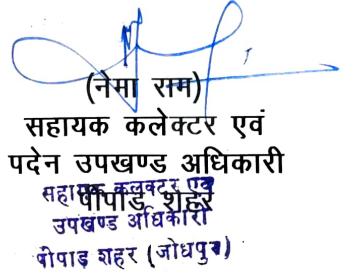 (नेमा राम)
सहायक कलेक्टर एवं
पदेन उपखण्ड अधिकारी
पीपाड़ शहर
सहायक कलक्टर एवं
उपखण्ड अधिकारी
पीपाड़ शहर (जोधपुर)